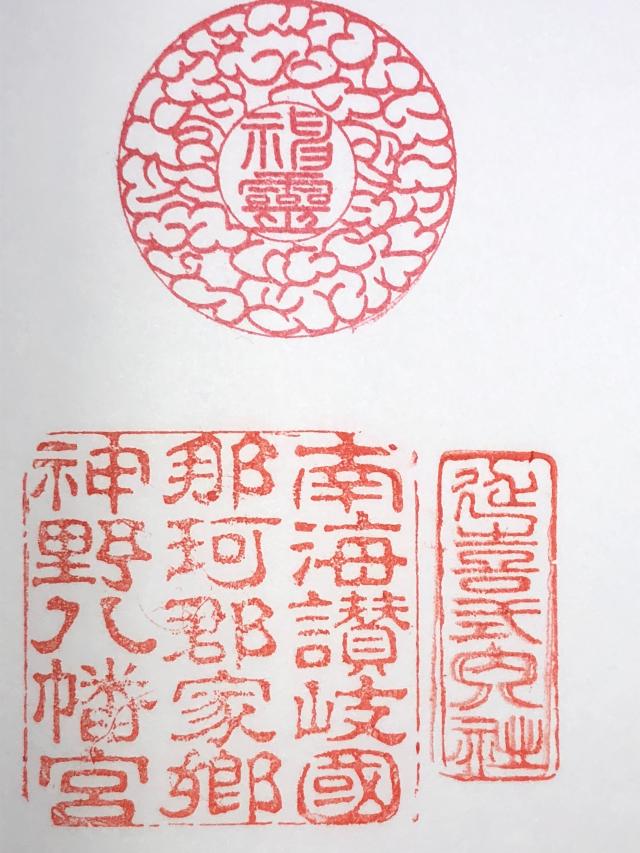 神靈
延喜式內社
南海讚岐國
那珂郡家鄉
神野八幡宮